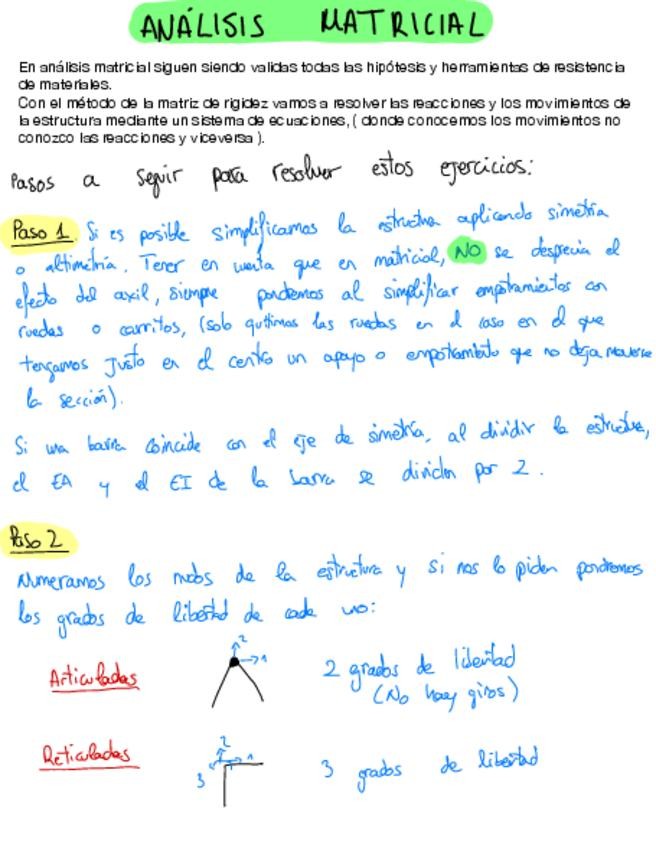 ANÁLISIS MATRICIAL
En análisis matricial siguen siendo validas todas las hipótesis y herramientas de resistencia
de materiales.
Con el método de la matriz de rigidez vamos a resolver las reacciones y los movimientos de
la estructura mediante un sistema de ecuaciones, ( donde conocemos los movimientos no
conozco las reacciones y viceversa ).
Pasos a seguir para resolver estos ejercicios:
Paso 1. Si es posible simplificamos la estructura aplicando simetría
o altimetría. Tener en cuenta que en matricial, NO se desprecia el
efecto del axil, siempre pondremos al simplificar empotramientos con
ruedas o carritos, (solo quitamos las ruedas en el caso en el que
tengamos justo en el centro un apoyo o empotramiento que no deja moverse
la sección).
Si una barra coincide con el eje de simetría, al dividir la estructura,
el EA y el EI de la barra se dividen por 2.
Paso 2
Numeramos los nudos de la estructura y si nos lo piden pondremos
los grados de libertad de cada uno:
Articuladas 2 1 2 grados de libertad
(No hay giros)
Reticuladas 2 1 3 3 grados de libertad